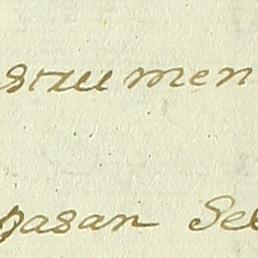 strumen
pasan Se